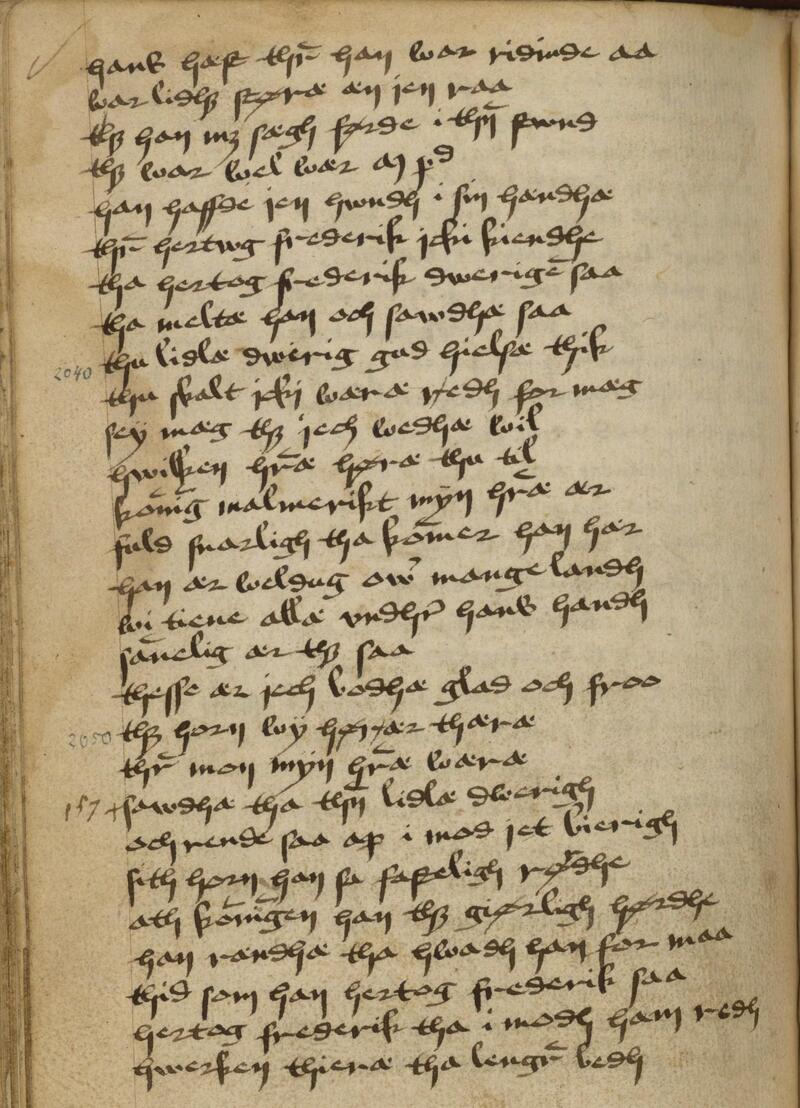 hans hæst thr̄ han war ridinde aa
war lidhꝫ størræ æn jen raa
thꝫ han mꝫ sægh førde i thn̄ stwnd
thꝫ war wel wær m pd
han haffde jen hwndh i sin hændhæ
thr̄ hertwg frederik jcki kiendhe
tha hertog frederik dwerigē saa
tha meltæ han och sawdhæ saa
2040 thu lidlæ dwerig gud hielpæ thik
thu skalt jckj wæræ redh for mæg
sey mæg thꝫ jech wedhæ wil
hwilken hr̄æ høræ thu til
kōnīg malmerikt myn hr̄æ ær
fuld snarligh tha kōmer han hær
han ær weldug ow̄ mange landh
wi tiene allæ vndhr̄ hans handh
sānelig ær thꝫ saa
thesse ær jech bodhæ glad och froo
2050 thꝫ horn wy hørær thæræ
thr̄ mon myn hr̄æ wæræ
157 + sawdhæ tha thn̄ lidlæ dwerigh
och rende saa ap i mod jet bierigh
sith horn han sa fasteligh rødhe
ath kōnīgen han thꝫ giørligh hørdhe
han rændhæ tha hwadh han for maa
thid som han hertog frederik saa
hertog frederik tha i modh ham redh
hwerken thieræ tha lengr̄ bedh